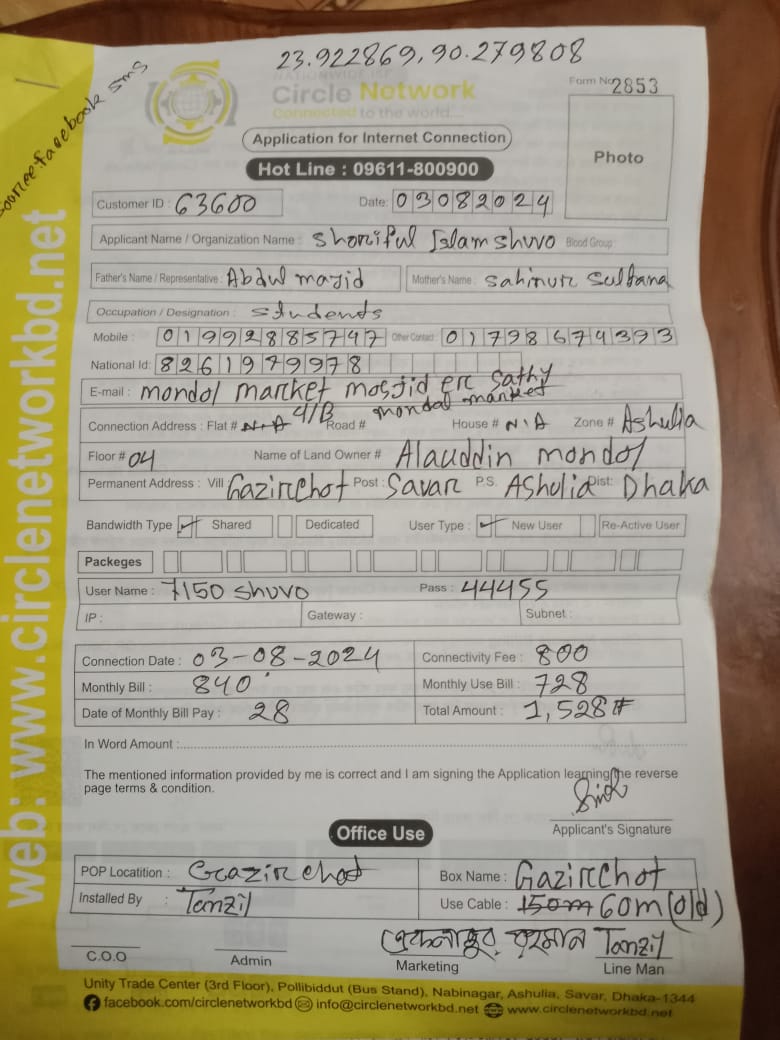 23.922869, 90.279808
Source: facebook sms
NATIONWIDE ISP
Circle Network
Connected to the world....
Form No 2853
Application for Internet Connection
Hot Line : 09611-800900
Photo
Customer ID : 63600 Date: 03082024
Applicant Name / Organization Name : Shoriful Islam shuvo Blood Group:
Father's Name / Representative : Abdul majid Mother's Name : Sahinur Sultana
Occupation / Designation : Students
Mobile : 01992885747 Other Contact : 01798674393
National Id: 8261979978
E-mail : mondol market mosjid erc sathy
mondal market
Connection Address : Flat # N.A 4/B Road # House # N.A Zone # Ashulia
Floor # 04 Name of Land Owner # Alauddin mondol
Permanent Address : Vill Gazirchot Post : Savar P.S. Ashulia Dist: Dhaka
Bandwidth Type Shared Dedicated User Type : New User Re-Active User
Packeges
User Name : 7150 Shuvo Pass : 44455
IP : Gateway : Subnet :
Connection Date : 03-08-2024 Connectivity Fee : 800
Monthly Bill : 840 Monthly Use Bill : 728
Date of Monthly Bill Pay : 28 Total Amount : 1,528#
In Word Amount :
The mentioned information provided by me is correct and I am signing the Application learning the reverse
page terms & condition.
Applicant's Signature
Office Use
POP Locatition : Gazirchot Box Name : Gazirchot
Installed By : Tanzil Use Cable : 150m 60m (old)
রহমান Tanzil
C.O.O Admin Marketing Line Man
Unity Trade Center (3rd Floor), Pollibiddut (Bus Stand), Nabinagar, Ashulia, Savar, Dhaka-1344
facebook.com/circlenetworkbd info@circlenetworkbd.net www.circlenetworkbd.net
web: www.circlenetworkbd.net